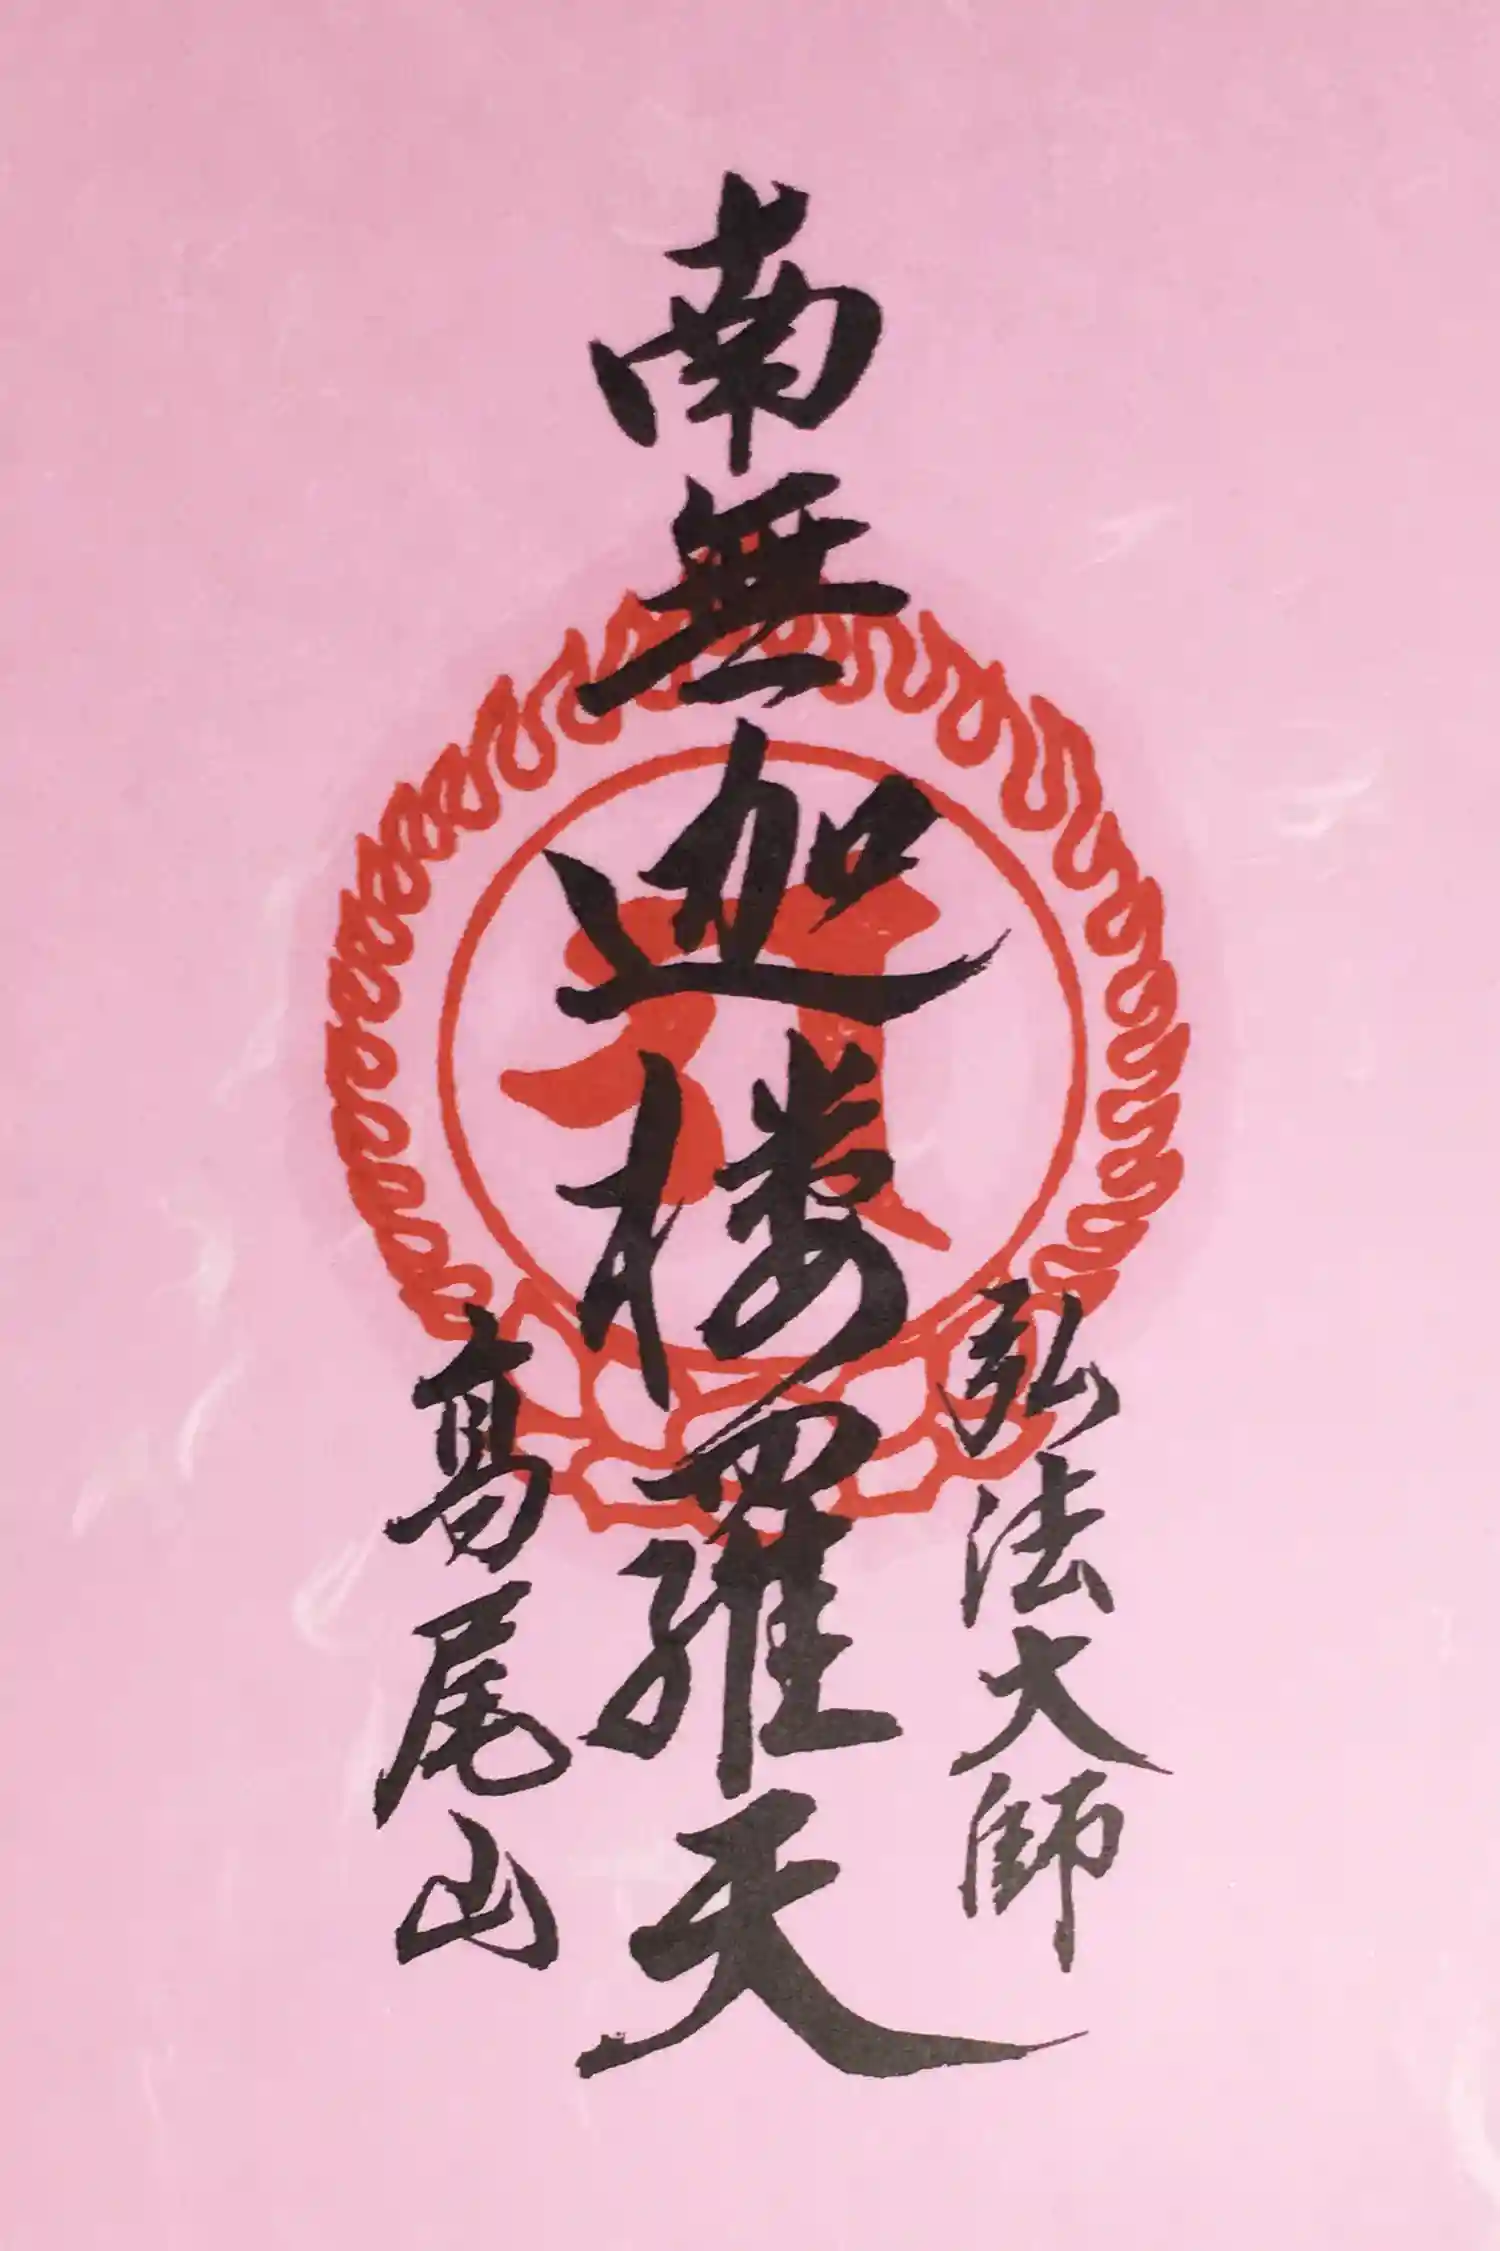 弘法大師
南無迦楼羅天
高尾山